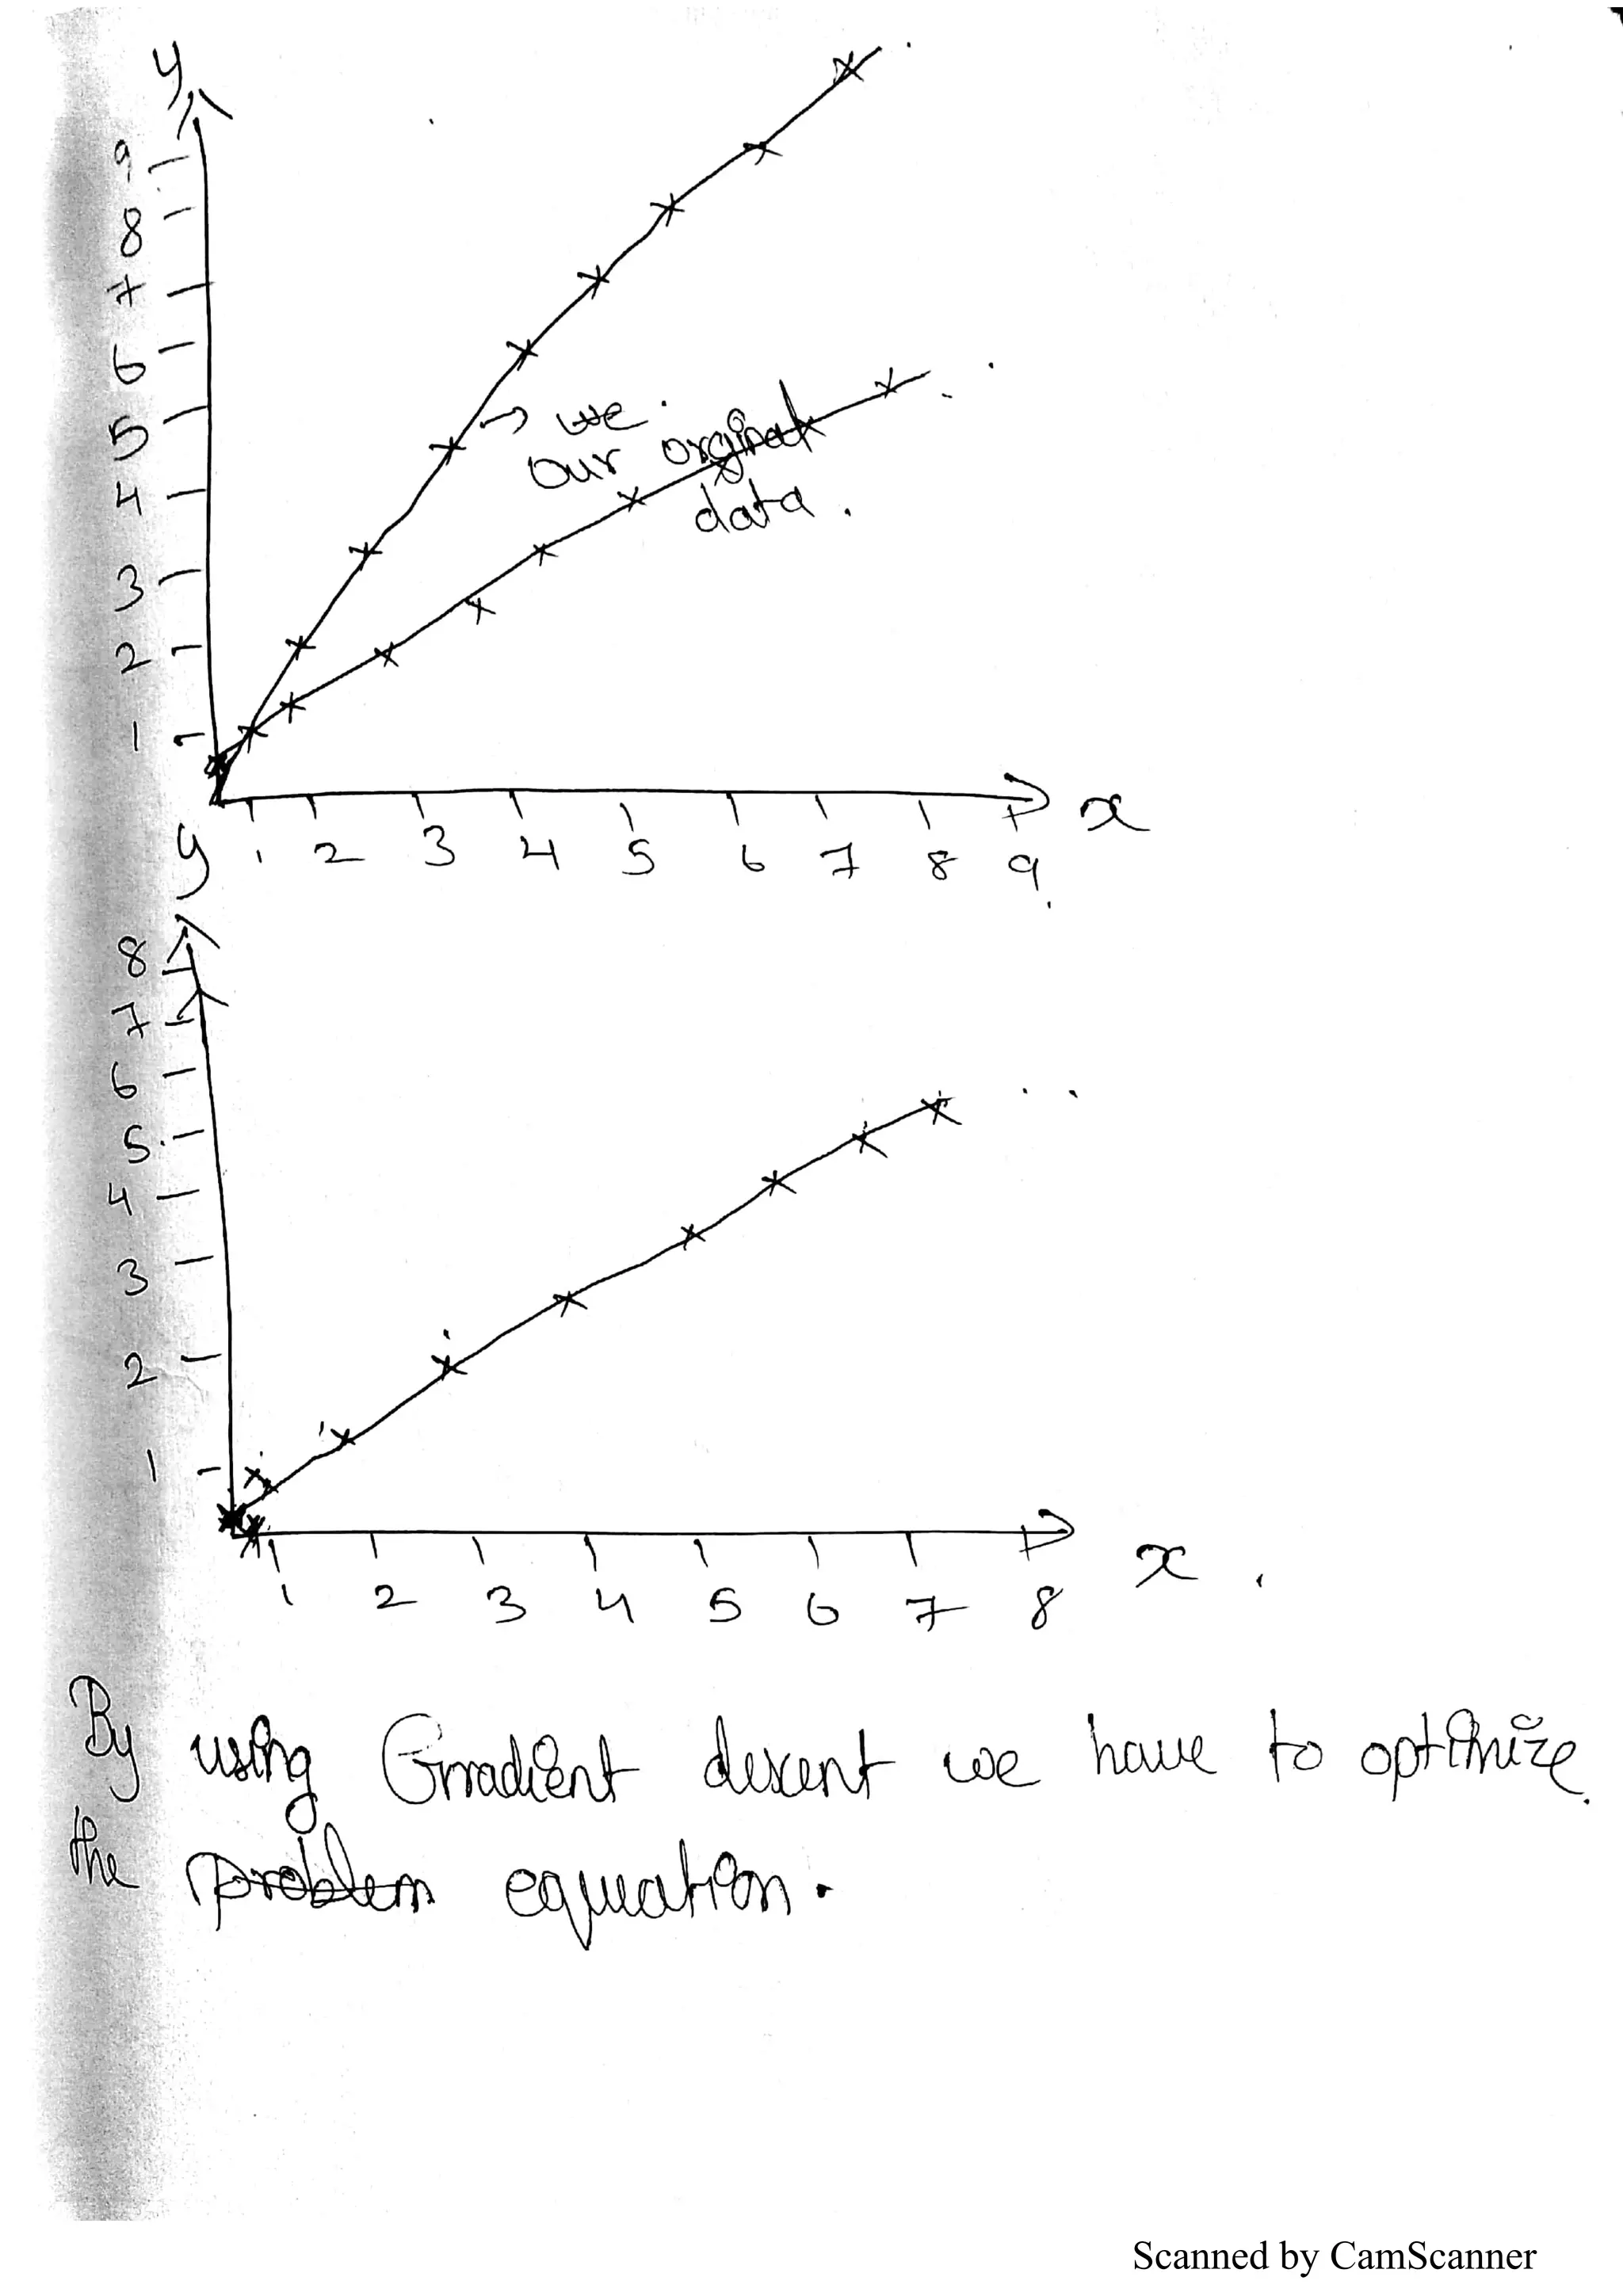 y
9
8
7
6
5
4
3
2
1
→ we
our orginal
data.
1 2 3 4 5 6 7 8 9 x
y
8
7
6
5
4
3
2
1
1 2 3 4 5 6 7 8 x
By using Gradient descent we have to optimize
the problem equation.
Scanned by CamScanner